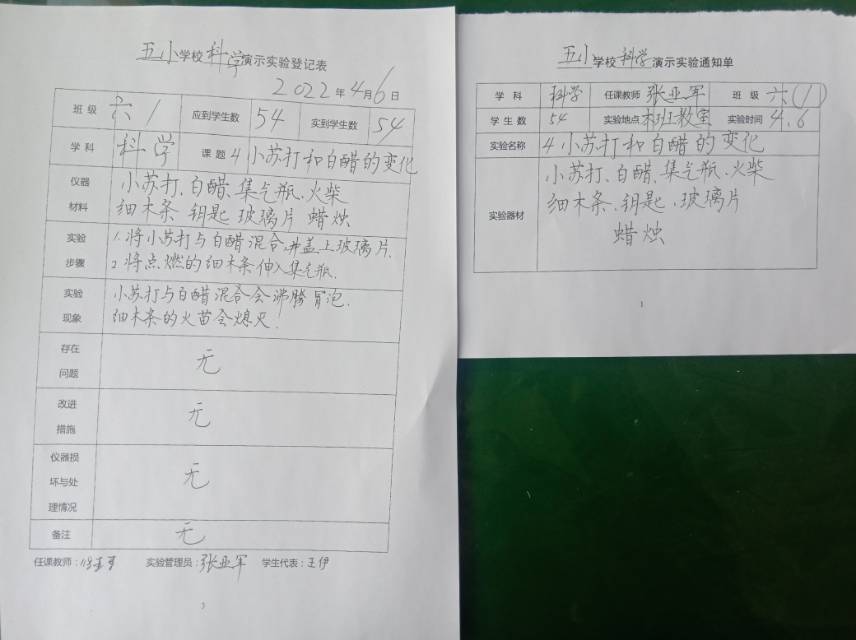 五小学校科学演示实验登记表
2022年4月6日
班级 六1 应到学生数 54 实到学生数 54
学科 科学 课题 4小苏打和白醋的变化
仪器材料 小苏打、白醋、集气瓶、火柴
细木条、钥匙、玻璃片 蜡烛
实验步骤 1.将小苏打与白醋混合并盖上玻璃片.
2.将点燃的细木条伸入集气瓶.
实验现象 小苏打与白醋混合会沸腾冒泡.
细木条的火苗会熄灭.
存在问题 无
改进措施 无
仪器损坏与处理情况 无
备注 无
任课教师: 实验管理员:张亚军 学生代表:王伊
五小学校科学演示实验通知单
学科 科学 任课教师 张亚军 班级 六(1)
学生数 54 实验地点 本班教室 实验时间 4.6
实验名称 4.小苏打和白醋的变化
实验器材 小苏打、白醋、集气瓶、火柴
细木条、钥匙、玻璃片
蜡烛
1